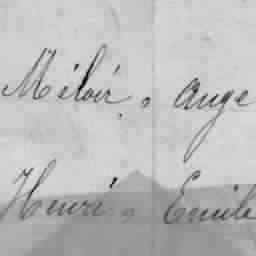 Méloir, Ange
Henri, Emile